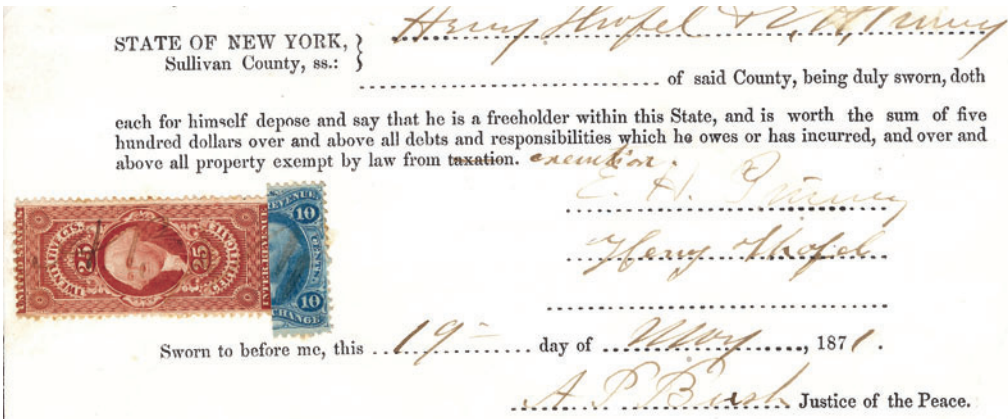 Henry
STATE OF NEW YORK,
Sullivan County, ss.:
of said County, being duly sworn, doth
each for himself depose and say that he is a freeholder within this State, and is worth the sum of five
hundred dollars over and above all debts and responsibilities which he owes or has incurred, and over and
above all property exempt by law from taxation. execution.
E. H.
Henry
REVENUE
10 CENTS
10
25 25
TWENTY FIVE CTS. CERTIFICATE
INTER. REVENUE
Sworn to before me, this 19 day of May, 1871.
A P Bush Justice of the Peace.